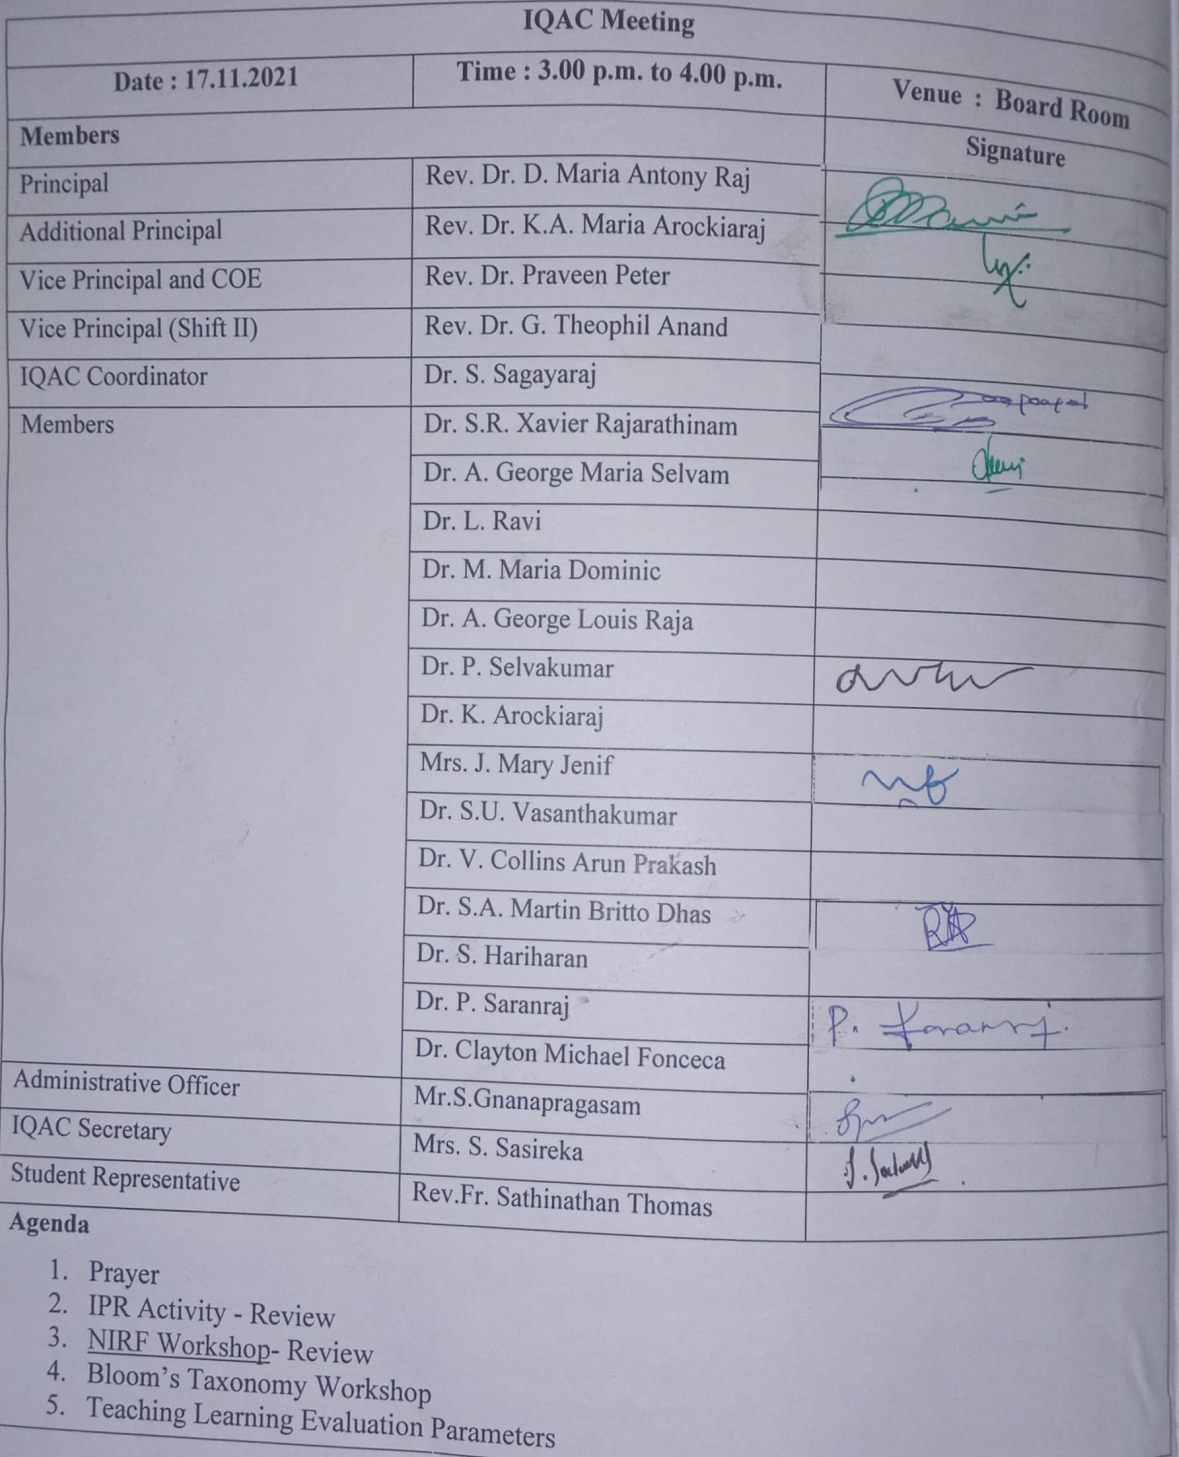 IQAC Meeting
Date : 17.11.2021 Time : 3.00 p.m. to 4.00 p.m. Venue : Board Room
Members Signature
Principal Rev. Dr. D. Maria Antony Raj
Additional Principal Rev. Dr. K.A. Maria Arockiaraj
Vice Principal and COE Rev. Dr. Praveen Peter
Vice Principal (Shift II) Rev. Dr. G. Theophil Anand
IQAC Coordinator Dr. S. Sagayaraj
Members Dr. S.R. Xavier Rajarathinam
Dr. A. George Maria Selvam
Dr. L. Ravi
Dr. M. Maria Dominic
Dr. A. George Louis Raja
Dr. P. Selvakumar
Dr. K. Arockiaraj
Mrs. J. Mary Jenif
Dr. S.U. Vasanthakumar
Dr. V. Collins Arun Prakash
Dr. S.A. Martin Britto Dhas
Dr. S. Hariharan
Dr. P. Saranraj P. Saranraj.
Dr. Clayton Michael Fonceca
Administrative Officer Mr.S.Gnanapragasam
IQAC Secretary Mrs. S. Sasireka
Student Representative Rev.Fr. Sathinathan Thomas
Agenda
1. Prayer
2. IPR Activity - Review
3. NIRF Workshop- Review
4. Bloom's Taxonomy Workshop
5. Teaching Learning Evaluation Parameters